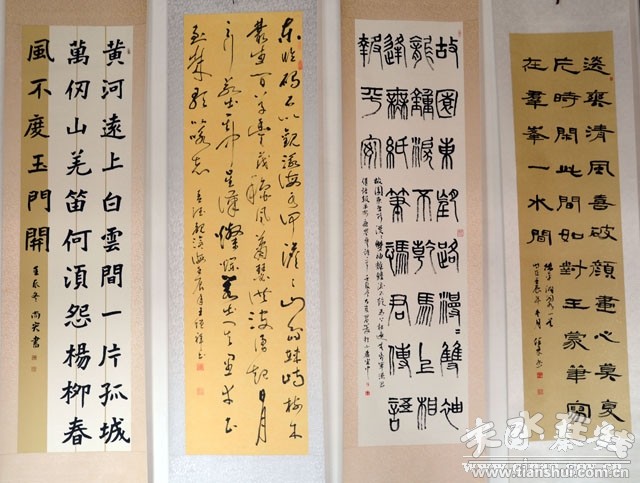 黃河遠上白雲間一片孤城
萬仞山羌笛何湏怨楊柳春
風不度玉門開
壬辰冬 尚宏書
東臨碣石以觀滄海水何澹澹山島竦峙樹木
叢生百草豐茂秋風蕭瑟洪波湧起日月
之行若出其中星漢燦爛若出其里幸甚
至哉歌以詠志
故園東望路漫〻雙袖
龍鍾淚不乾馬上相
逢無紙筆馮君傳語
報平安
送爽清風喜破顏畫心莫
片時閑此間如對王蒙筆寫
在羣峯一水間
天水在线
www.tianshui.com.cn